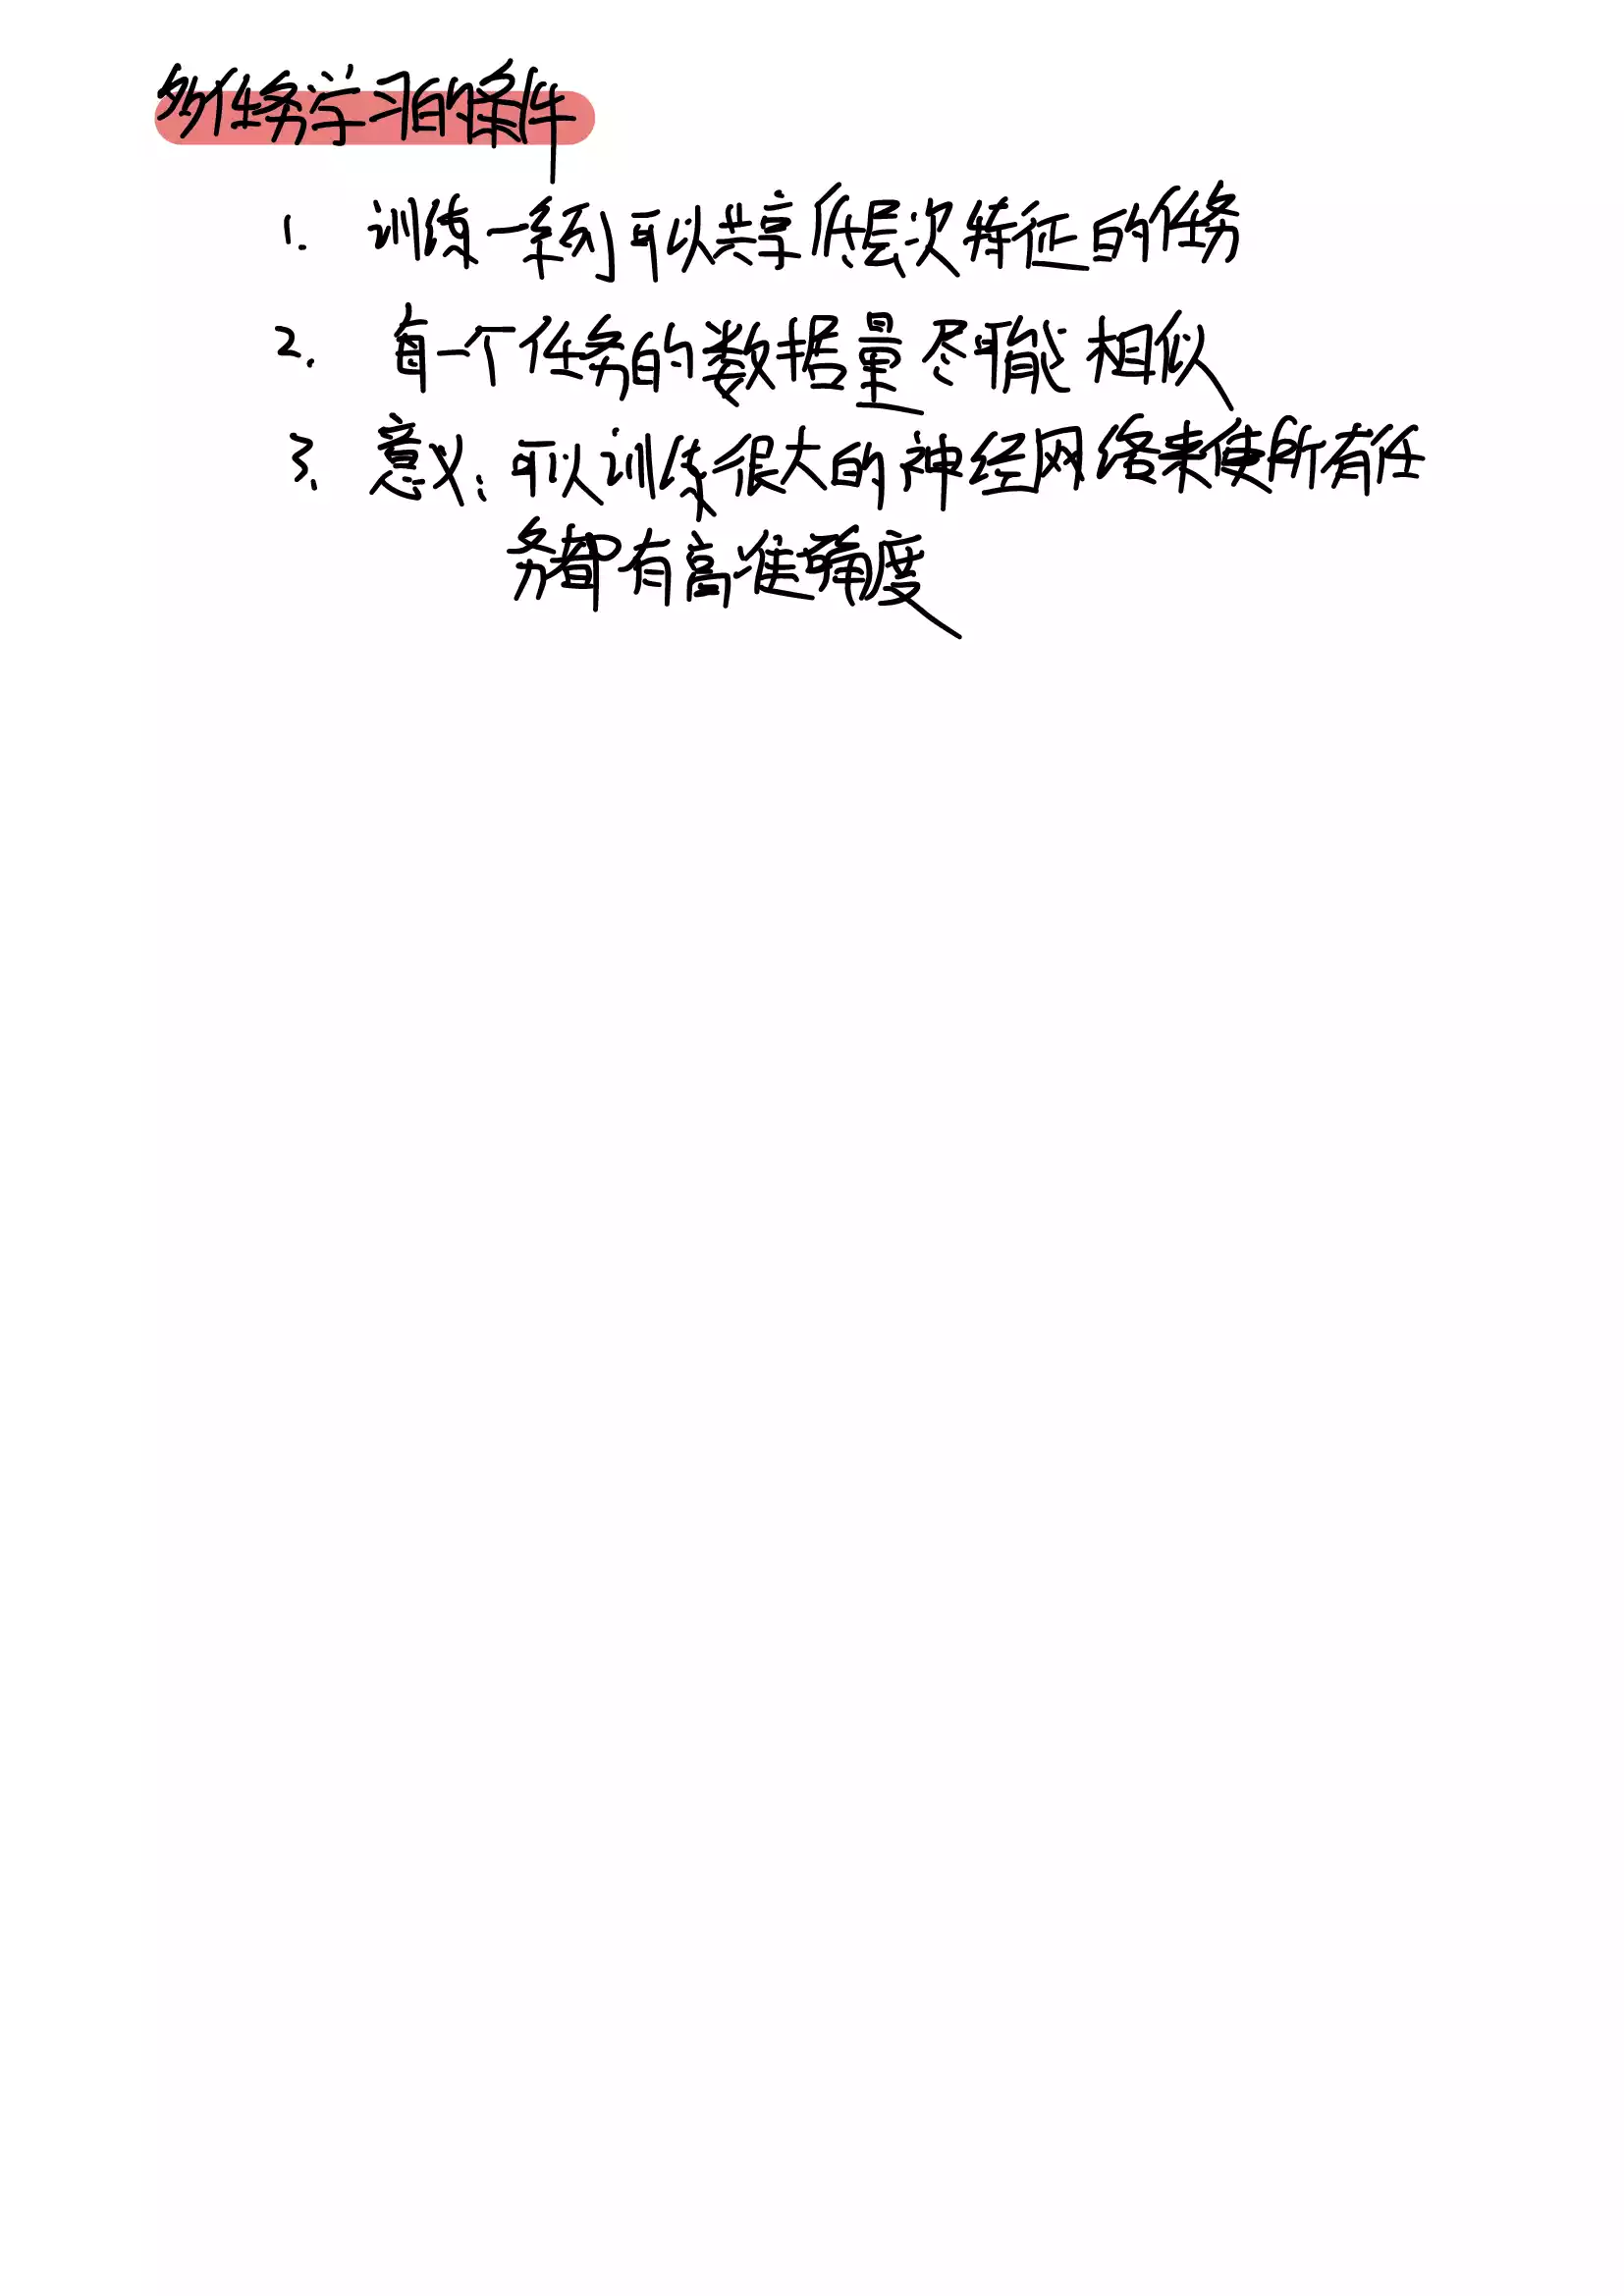 多任务学习的条件
1. 训练一系列可以共享低层次特征的任务
2. 每一个任务的数据量尽可能相似
3. 意义：可以训练很大的神经网络来使所有任
务都有高准确度